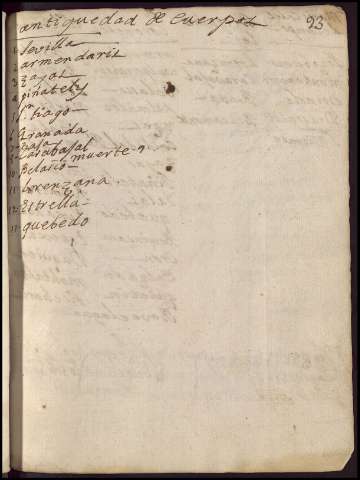 antiguedad de Cuerpos 93
1 Sevilla
2 armendaris
3 Zayas
4 piñately
5 S.n tiago
6 Granada
7 Casa
9 Carabajal
10 Belasco muerte
11 Lorenzana
12 Estrella
13 quebedo